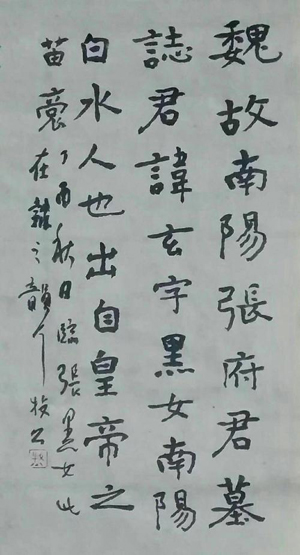 魏故南陽張府君墓
誌君諱玄字黑女南陽
白水人也出自皇帝之
苗裔
丁酉秋日臨張黑女此
在 之韻